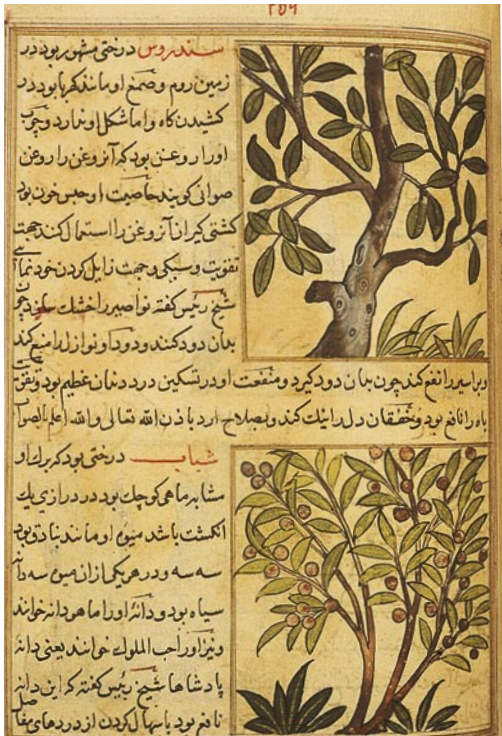 ۲۵۹
سندروس درختی مشهور بود در
زمین روم و صمغ او مانند کهربا بود در
کشیدن کاه و اما شکل او ندارد و چوب
او را روغن بود که آن روغن را روغن
صوانی کویند خاصیت او حبس خون بود
کشتی کیران آن روغن را استعمال کنند جهت
تقویت و سبکی و جهت زایل کردن خود
شیخ رئیس کفته نواصیر را خشک سازد چون
بدان دود کنند و دود او نوازل را منع کند
و براسیر را نفع کند چون بدان دود کیرد و منفعت او در تسکین درد دندان عظیم بود و
باه را نافع بود و خفقان دل را نیک کند و بصلاح ارد باذن الله تعالی والله اعلم بالصواب
شباب درختی بود که برک او
مشابه ماهی کوچک بود در درازی یک
انکشت باشد میوه او مانند بنادق بود
سه سه و در هریکی از ان میوه سه دانه
سیاه بود و دانه او را ماهودانه خوانند
و نیز او را حب الملوک خوانند یعنی دانه
پادشاها شیخ رئیس کفته که این دانه
نافع بود باسهال کردن از دردهای مفاصل